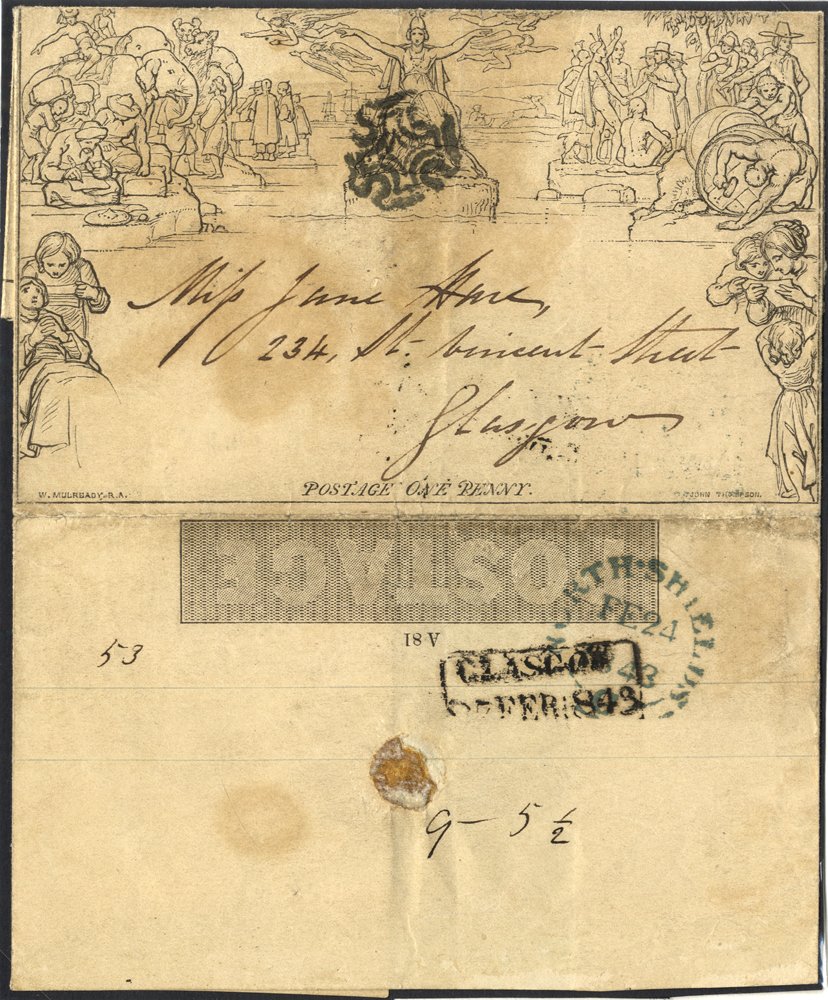 Miss Jane Hare,
234, St. Vincent Street
Glasgow
W. MULREADY. R.A.
POSTAGE ONE PENNY.
JOHN THOMPSON.
POSTAGE
A 18
53
NORTH-SHIELDS
FE 24
43
GLASGOW
FEB 1843
9 - 5 ½